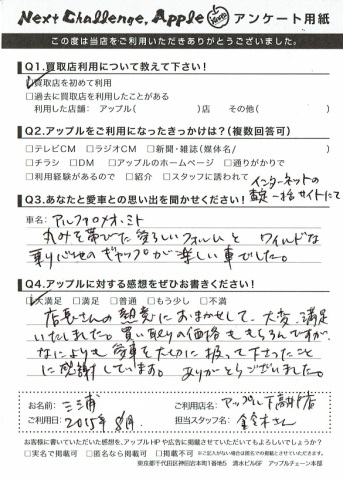 Next Challenge, Apple アンケート用紙
この度は当店をご利用いただきありがとうございました。
Q1.買取店利用について教えて下さい!
□買取店を初めて利用
□過去に買取店を利用したことがある
利用した店舗: アップル( )店 その他( )
Q2.アップルをご利用になったきっかけは?(複数回答可)
□テレビCM □ラジオCM □新聞・雑誌(媒体名/ )
□チラシ □DM □アップルのホームページ □通りがかりで
□利用経験があるので □紹介 □スタッフに誘われて
インターネットの
査定一括サイトにて
Q3.あなたと愛車との思い出を聞かせください!
車名: アルファロメオ・ミト
丸みを帯びた愛らしいフォルムと ワイルドな
乗り心地のギャップが楽しい車でした。
Q4.アップルに対する感想をぜひお書きください!
□大満足 □満足 □普通 □もう少し □不満
店長さんの熱意におまかせして、大変、満足
いたしました。買い取りの価格ももちろんですが、
なによりも愛車を大切に扱って下さったこと
に感謝しています。ありがとうございました。
お名前: 三浦
ご利用店名: アップル下高井戸店
ご利用日: 2015年8月
担当スタッフ名: 金*さん
お客様に書いていただいた感想を、アップルHPや広告に掲載させていただいてもよろしいでしょうか?
□実名で掲載可 □匿名なら掲載可 □掲載不可 ※ご記入がない場合は匿名での掲載とさせていただきます。
東京都千代田区神田岩本町1番地5 清水ビル6F アップルチェーン本部